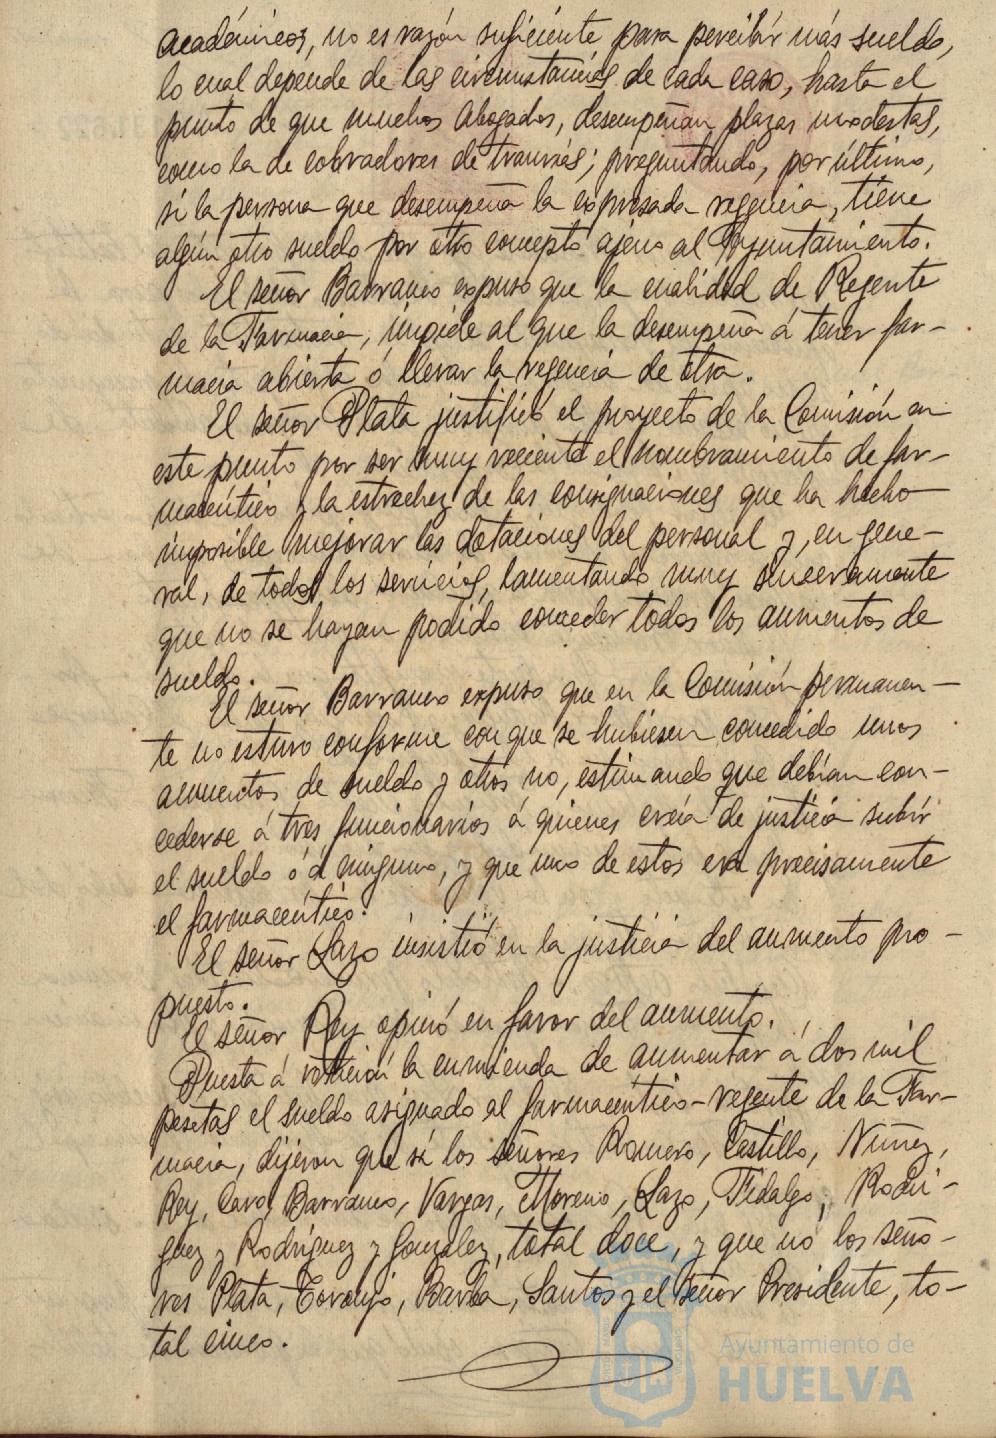 académicos, no es razón suficiente para percibir más sueldo,
lo cual depende de las circunstancias de cada caso, hasta el
punto de que muchos Abogados, desempeñan plazas modestas,
como la de cobradores de tranvías; preguntando, por último,
si la persona que desempeña la expresada regencia, tiene
algún otro sueldo por otro concepto ajeno al Ayuntamiento.
El señor Barranco expuso que la cualidad de Regente
de la Farmacia, impide al que la desempeña á tener far-
macia abierta ó llevar la regencia de otra.
El señor Plata justificó el proyecto de la Comisión en
este punto por ser muy reciente el nombramiento de far-
macéutico y la estrechez de las consignaciones que ha hecho
imposible mejorar las dotaciones del personal y, en gene-
ral, de todos los servicios, lamentando muy sinceramente
que no se hayan podido conceder todos los aumentos de
sueldo.
El señor Barranco expuso que en la Comisión permanen-
te no estuvo conforme con que se hubiesen concedido unos
aumentos de sueldo y otros no, estimando que debían con-
cederse á tres funcionarios á quienes creía de justicia subir
el sueldo ó á ninguno, y que uno de estos era precisamente
el farmacéutico.
El señor Lazo insistió en la justicia del aumento pro-
puesto.
El señor Rey opinó en favor del aumento.
Puesta á votación la enmienda de aumentar á dos mil
pesetas el sueldo asignado al farmacéutico-regente de la Far-
macia, dijeron que sí los señores Romero, Castillo, Núñez,
Rey, Caro, Barranco, Vargas, Moreno, Lazo, Fidalgo, Rodrí-
guez y Rodríguez y González, total doce, y que no los seño-
res Plata, Toronjo, Barba, Santos y el señor Presidente, to-
tal cinco.
Ayuntamiento de
HUELVA